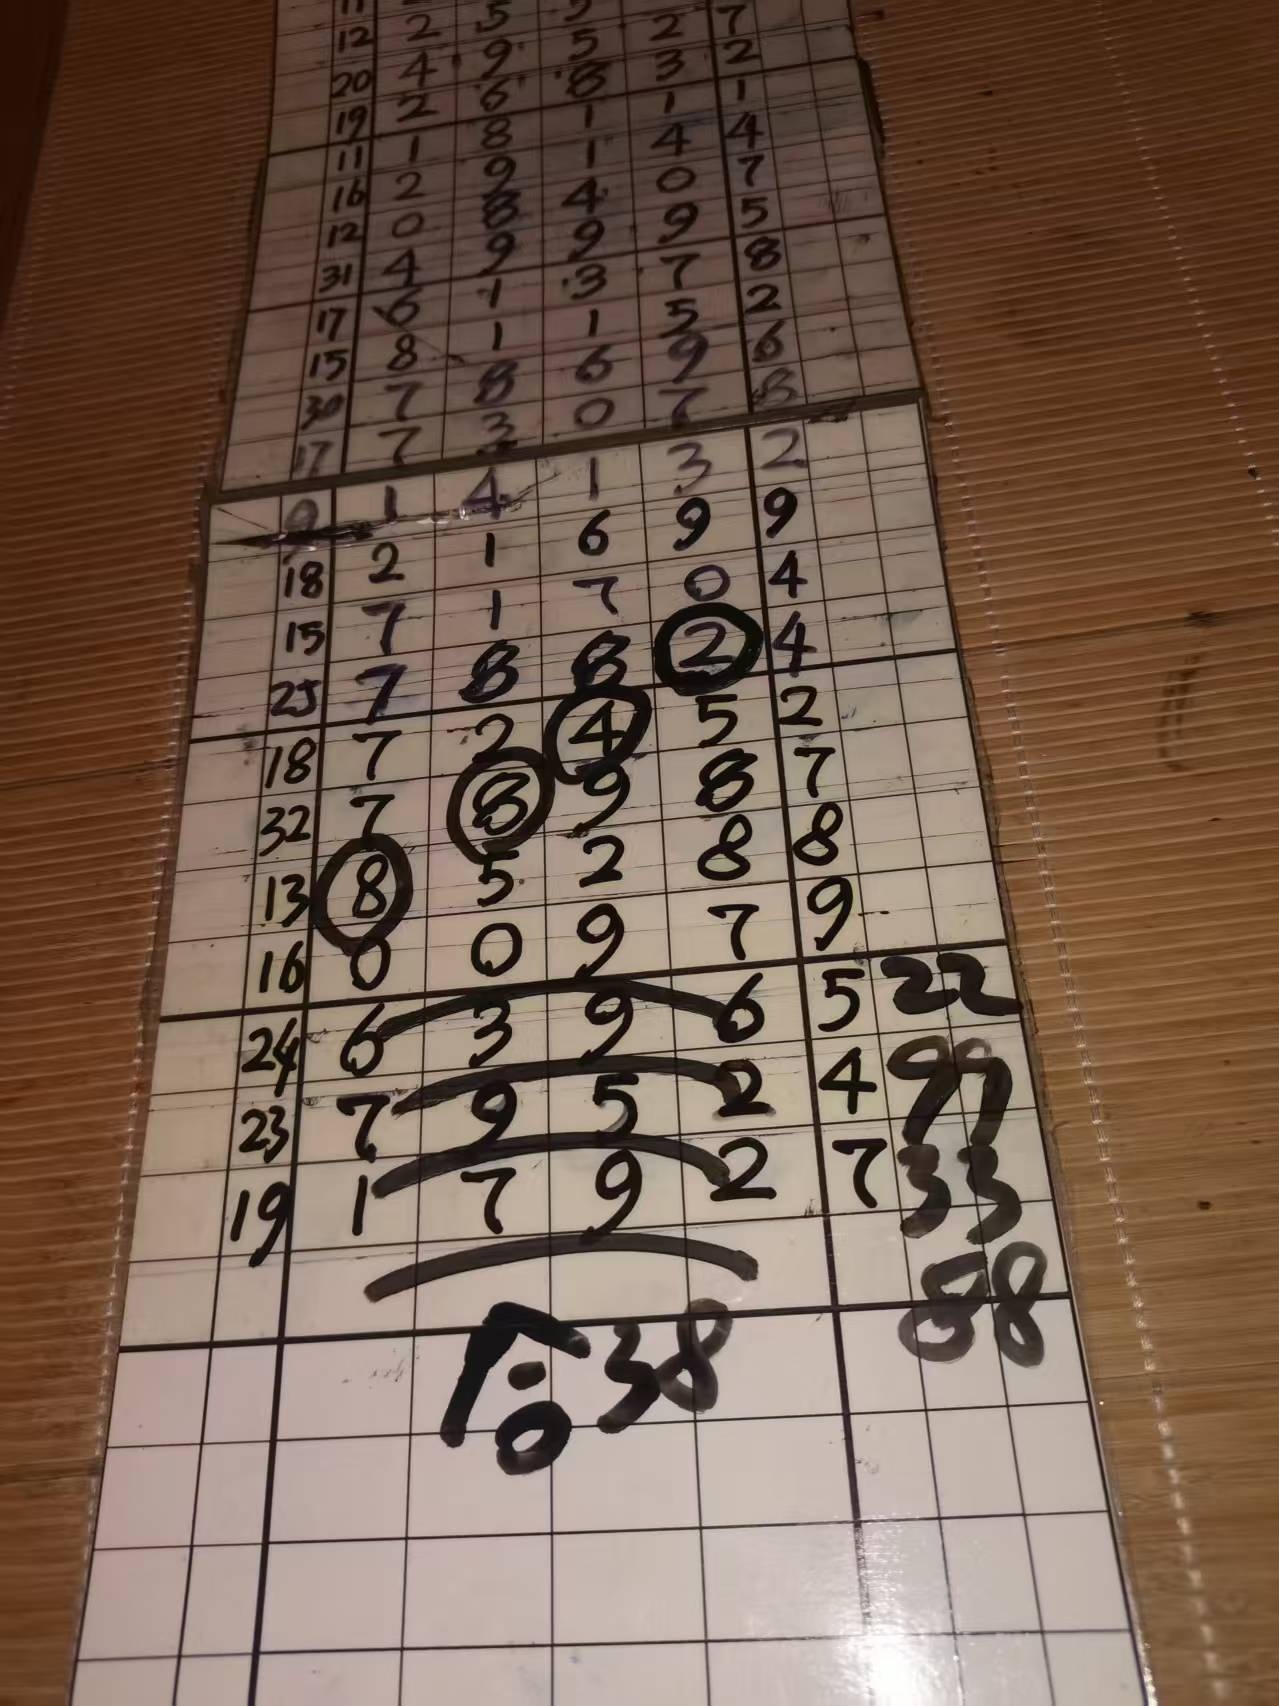 12 2 5 5 2 7
20 4 9 5 3 2
19 2 6 8 1 1
11 1 8 1 4 4
16 2 9 1 0 7
12 0 8 4 9 5
31 4 9 9 7 8
17 6 1 3 5 2
15 8 1 1 9 6
30 7 8 6 7 8
17 7 3 0 3 2
9 1 4 1 9 9
18 2 1 6 0 4
15 7 1 7 2 4
25 7 8 8 5 2
18 7 2 4 8 7
32 7 8 9 8 8
13 8 5 2 7 9
16 0 0 9 6 5 22
24 6 3 9 2 4 99
23 7 9 5 2 7 33
19 1 7 9 88
38